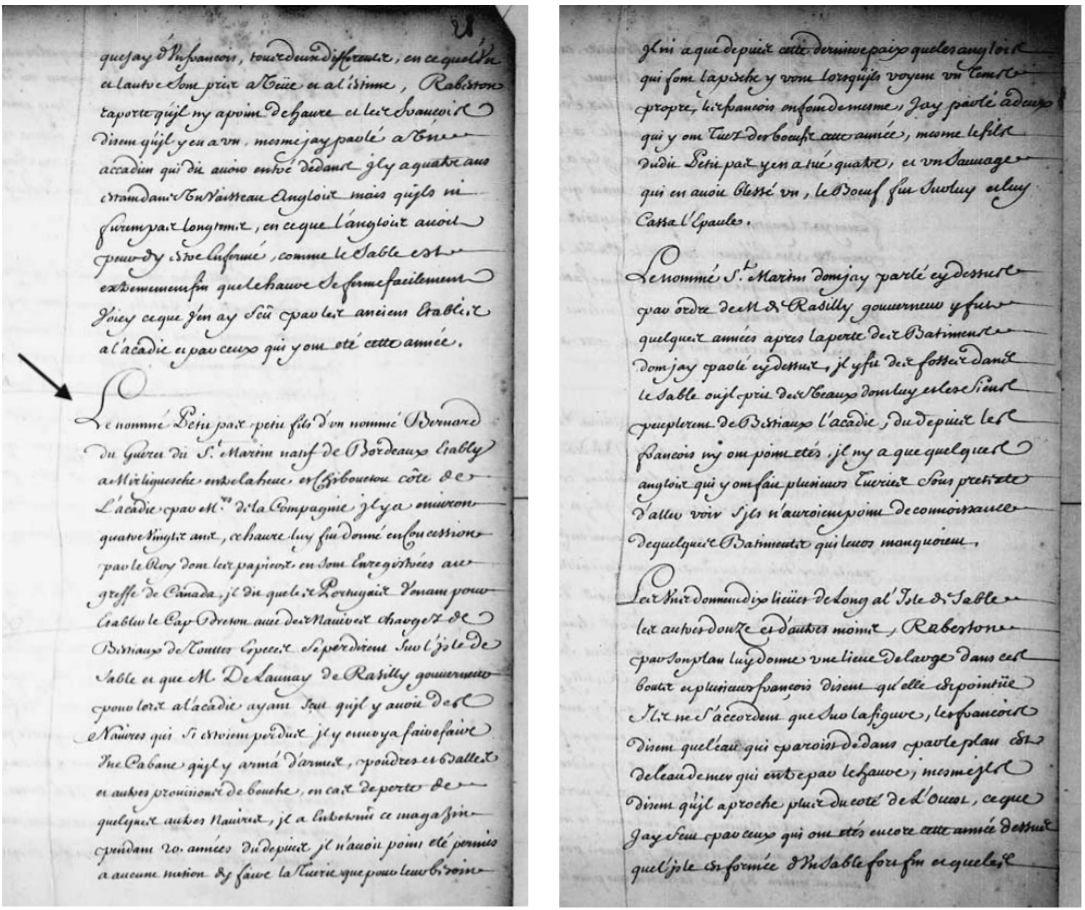 28
que jay d'un francois, tous deux differents, en ce que l'un
et l'autre sont pris a veüe et a l'estime, Raberton
raporte qu'jl ny a point de haure et les francois
disent qu'jl y en a vn, mesme jay parlé a un
accadien qui dit auoir entré dedans jl y a quatre ans
estant dans un vaisseau Anglois mais qu'jls ni
furent pas longtems, en ce que l'anglois auoit
peur d'y estre enfermé, comme le sable est
extremement fin que le haure se ferme facilement
Voicy ce que j'en ay sçû par les anciens etablis
a l'acadie et par ceux qui y ont eté cette année.
Le nommé Petit pas petit fils d'un nommé Bernard
du Gueret dit St. Martin natif de Bordeaux etably
a Mirliguesche entre la heue et Chibouctou côte de
L'acadie par Mrs. de la Compagnie jl y a enuiron
quatre vingts ans, ce haure luy fut donné en Concession
par le Roy dont les papiers en sont Enregistrées au
greffe de Canada, jl dit que les Portugais venant pour
etablir le Cap Breton auec des Nauires chargez de
Bestiaux de toutes especes se perdirent sur l'jsle de
Sable et que M De Launay de Rasilly gouuerneur
pour lors a l'acadie ayant sçut qu'jl y auoit des
Nauires qui s'i estoient perdus jl y enuoya faire faire
Une Cabane qu'jl y arma d'armes, poudres et balles
et autres prouisions de bouche, en cas de perte de
quelques autres Nauires, jl a entretenu ce magazin
pendant 20 années du depuis jl n'auoit point eté permis
a aucune nation d'y faire la tuerie que pour leur besoin
jl ni a que depuis cette derniere paix que les anglois
qui font la pesche y vont lorsqu'jls voyent vn tems
propre, les francois en font de mesme, Jay parlé a deux
qui y ont tuez des boeufs cette année, mesme le fils
dudit Petit pas y en a tué quatre, et vn Sauuage
qui en auoit blessé vn, le Boeuf fut sur luy et luy
Cassa l'Epaule.
Le nommé St. Martin dont jay parlé cy dessus
par ordre de M de Rasilly gouuerneur y fut
quelques années apres la perte des Batimens
dont jay parlé cy dessus, jl y fit des fosses dans
le Sable ou jl prit des Veaux dont luy et les siens
peuplerent de Bestiaux l'acadie, du depuis les
francois ny ont point etés, jl ny a que quelques
anglois qui y ont fait plusieurs tueries sous pretexte
d'aller voir s'jls n'auroient point de connoissance
de quelques Batiments qui leurs manquoient.
Les uns donnent dix lieües de Long a l'Isle de Sable
les autres douze et d'autres moins, Raberton
par son plan luy donne vne lieue de large dans ces
bouts et plusieurs francois disent qu'elle est pointüe
Ils ne s'accordent que sur la figure, les francois
disent que l'eau qui paroist dedans par le plan est
de l'eau de mer qui entre par le haure, mesme jls
disent qu'jl aproche plus du coté de L'Ouest, ce que
Jay sçeu par ceux qui ont etés encore cette année dessus
que l'jsle est formée d'un Sable fort fin et que les